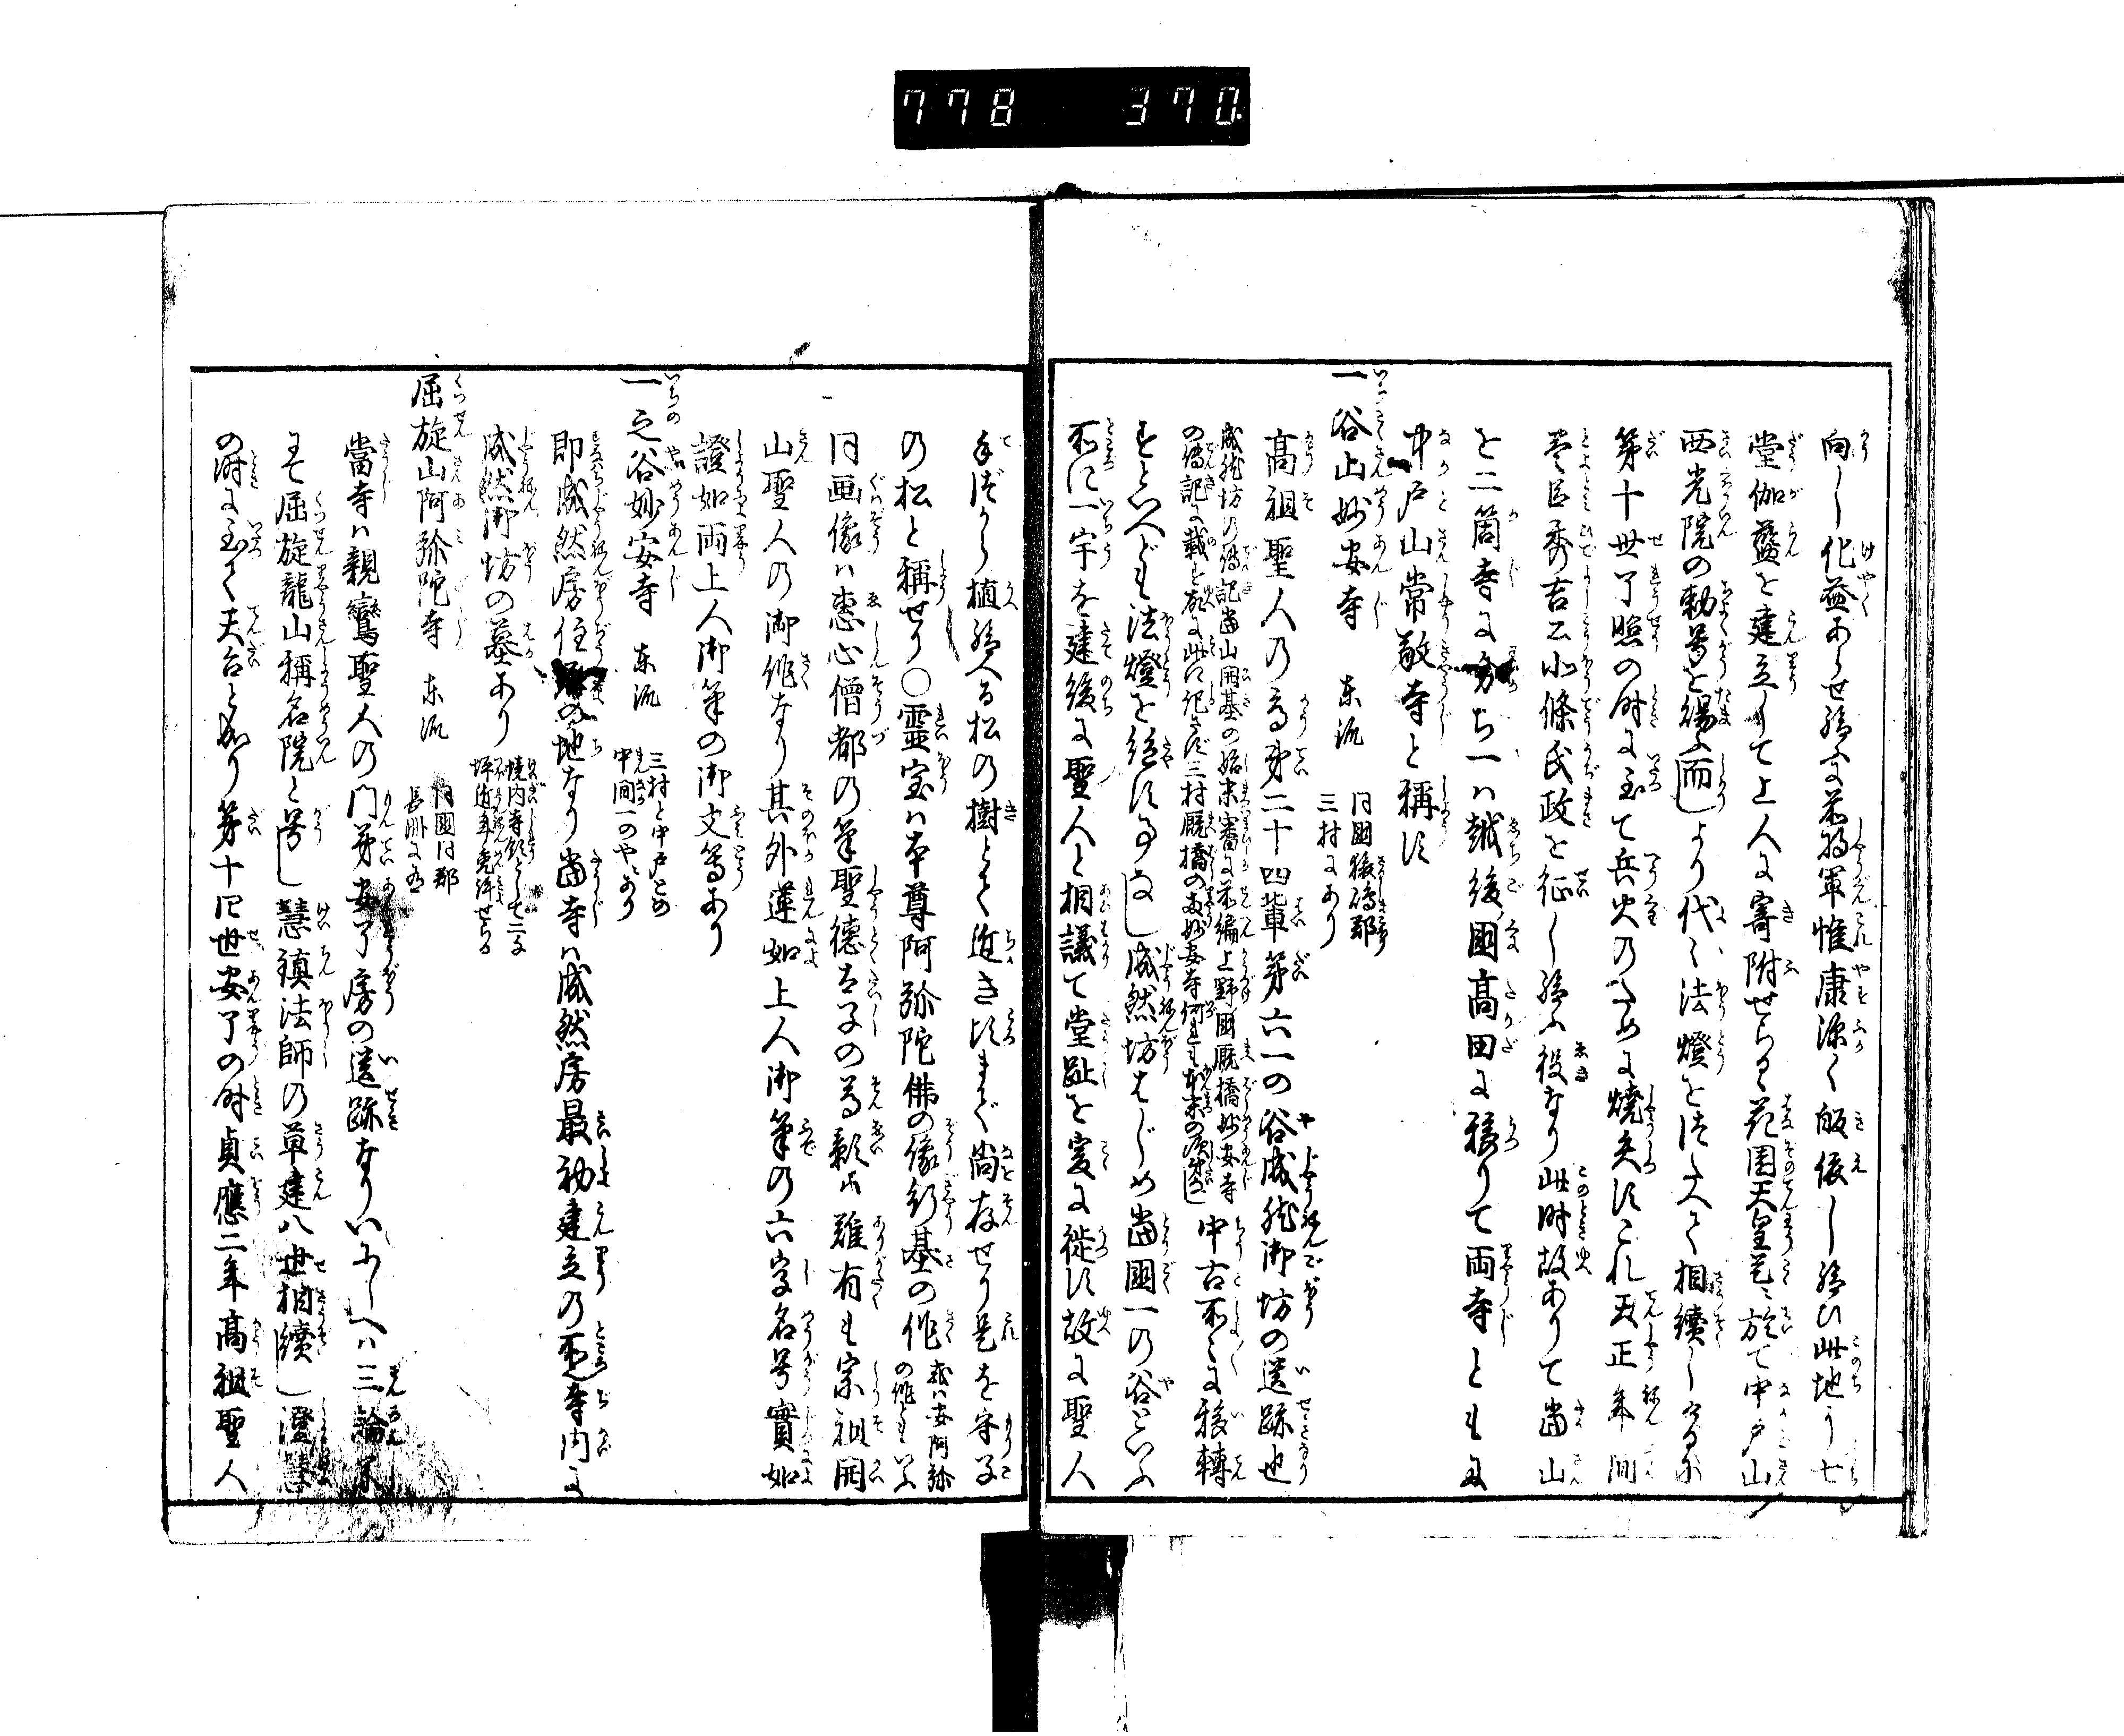 778 370
向し化益あらせ給ふ又将軍惟康深く皈依し給ひ此地に七
堂伽藍を建立して上人に寄附せらる花園天皇に於て中戸山
西光院の勅号を賜ふ而しより代々法燈を伝へて相續しけるが
第十世了照の時に至て兵火のために燒失すこれ天正年間
豊臣秀吉公小條氏政を征し給ふ役なり此時故ありて當山
を二箇寺に分ち一ハ越後國高田に移りて両寺ともに
中戸山常敬寺と稱す
一谷山妙安寺 東派 同國猨嶋郡三村にあり
高祖聖人の高弟二十四輩第六一の谷成然御坊の遺跡也
成然坊の傳記當山開基の始末審に前編上野國厩橋妙安寺
の傳記に載す故に此に記さず三村厩橋の両妙安寺何も
中古所々に移轉
すといへども法燈を絶す事なし成然坊はじめ當國一の谷といふ
所に一宇を建後に聖人と相議て堂趾を爰に徙す故に聖人
手づから植給へる松の樹とて近き頃まで尚存せり是を守子
の松と稱せり○靈宝ハ本尊阿弥陀佛の像行基の作 或ハ安阿弥の作ともいふ
同画像ハ恵心僧都の筆聖德太子の尊影難有も宗祖開
山聖人の御作なり其外蓮如上人御筆の六字名号實如
證如両上人御筆の御文等あり
一之谷妙安寺 東派 三村と中戸との中間一のやにあり
即成然房住の地なり當寺ハ成然房最初建立の所寺内に
成然御坊の墓あり 境内寺領として二手坪近年免許せらる
屈旋山阿弥陀寺 東派 同國同郡長洲に有
當寺ハ親鸞聖人の門弟安了房の遺跡なりいにしへハ三論宗
にて屈旋龍山稱名院と号し慧鎮法師の草建八世相續し澄慧
の時に至て天台と成り第十四世安了の時貞應二年高祖聖人